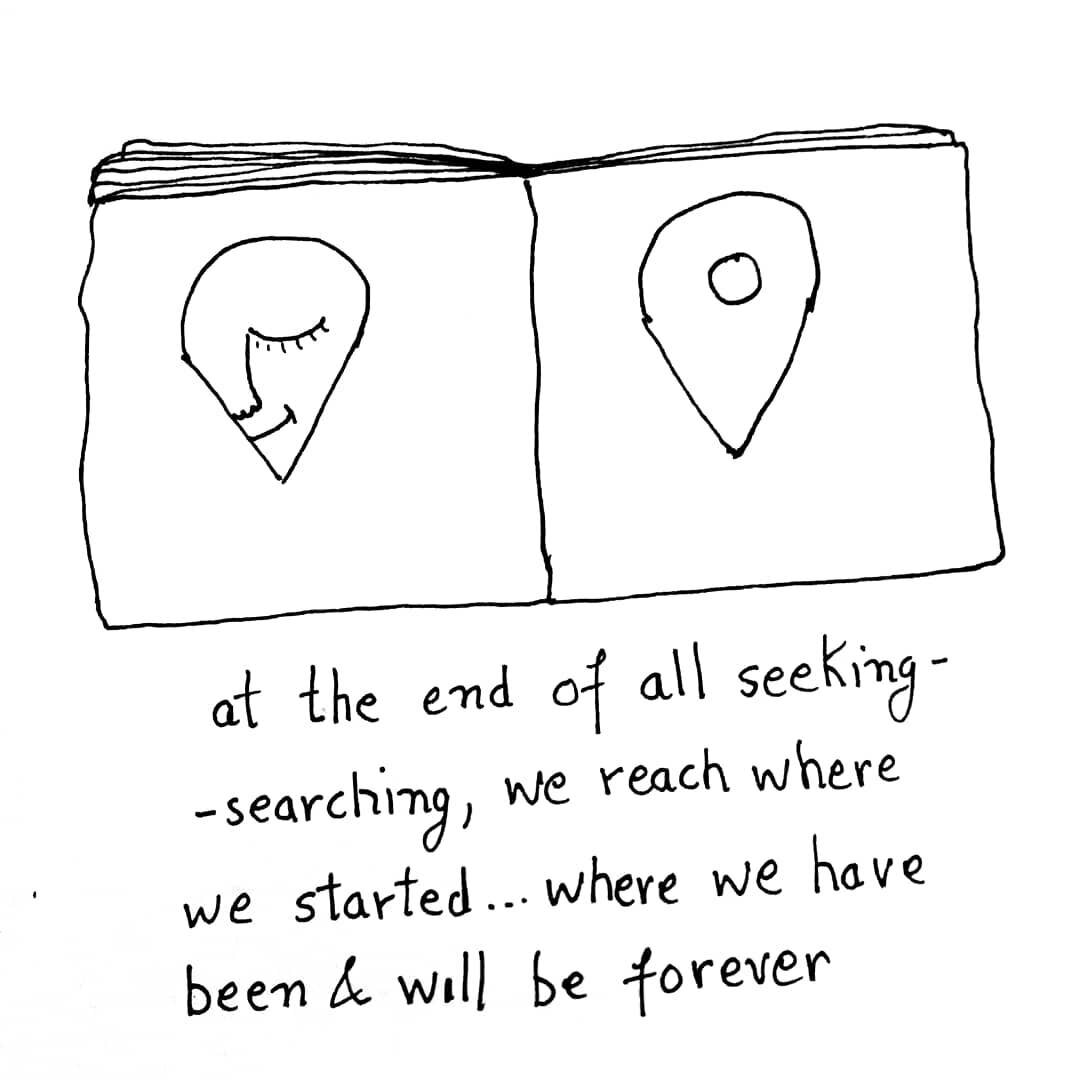 at the end of all seeking-
-searching, we reach where
we started... where we have
been & will be forever